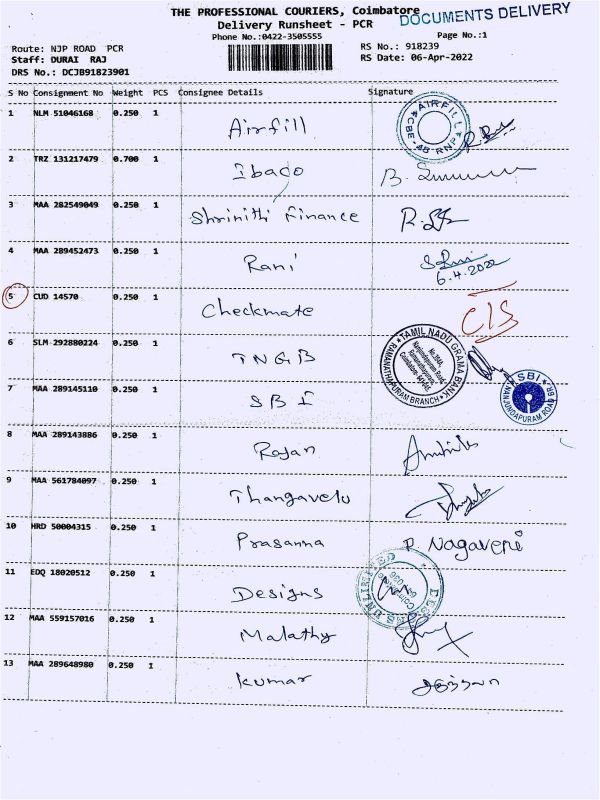 THE PROFESSIONAL COURIERS, Coimbatore
DOCUMENTS DELIVERY
Delivery Runsheet - PCR
Phone No.:0422-3505555
Page No.:1
Route: NJP ROAD PCR
RS No.: 918239
Staff: DURAI RAJ
RS Date: 06-Apr-2022
DRS No.: DCJB91823901
S No Consignment No Weight PCS Consignee Details Signature
1 NLM 51046168 0.250 1
Airfill
AIRFILL
CBE-45 RNP
2 TRZ 131217479 0.700 1
Ibaco
3 MAA 282549049 0.250 1
Shrinithi Finance
4 MAA 289452473 0.250 1
Rani
6.4.2022
5 CUD 14570 0.250 1
Checkmate
C/S
6 SLM 292880224 0.250 1
TNGB
TAMIL NADU GRAMA BANK
RAMANATHAPURAM BRANCH
7 MAA 289145110 0.250 1
SBI
SBI
NANJUNDAPURAM ROAD BR
8 MAA 289143886 0.250 1
Rajan
9 MAA 561784097 0.250 1
Thangavelu
10 HRD 50004315 0.250 1
Prasanna
P. Nagaveni
11 EDQ 18020512 0.250 1
Designs
DESIGNS UNLIMITED
12 MAA 559157016 0.250 1
Malathy
13 MAA 289648980 0.250 1
Kumar